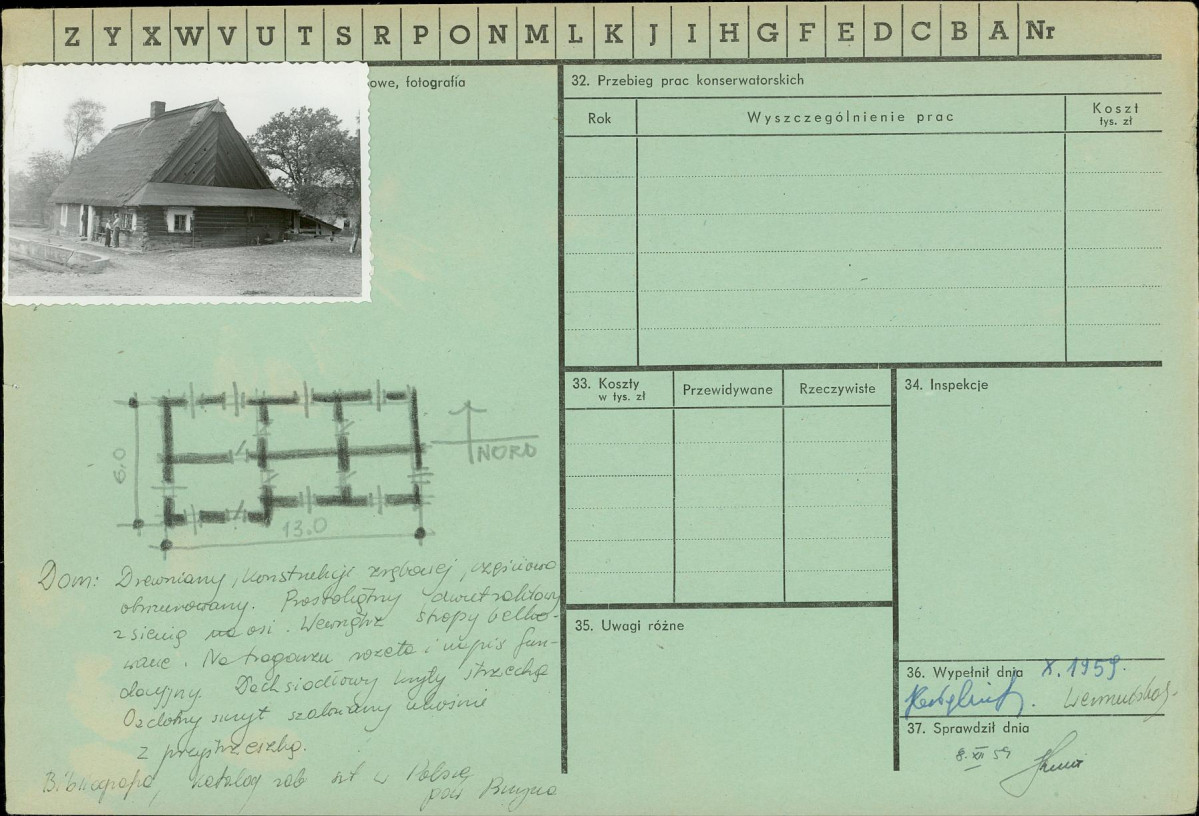 Z Y X W V U T S R P O N M L K J I H G F E D C B A Nr
owe, fotografia
32. Przebieg prac konserwatorskich
Rok
Wyszczególnienie prac
Koszt
tys. zł
33. Koszty
w tys. zł
Przewidywane
Rzeczywiste
34. Inspekcje
6.0
13.0
NORD
Dom: Drewniany, konstrukcji zrębowej, częściowo
obmurowany. Prostokątny dwutraktowy
z sienią na osi. Wewnątrz stropy belko-
wane. Na tragarzu rozeta i napis fun-
dacyjny. Dach siodłowy kryty strzechą
Ozdobny szczyt szalowany ukośnie
z przystrzeszką.
Bibliografia, Katalog zab szt w Polsce
pow
35. Uwagi różne
36. Wypełnił dnia X. 1959.
37. Sprawdził dnia
8. XII 59